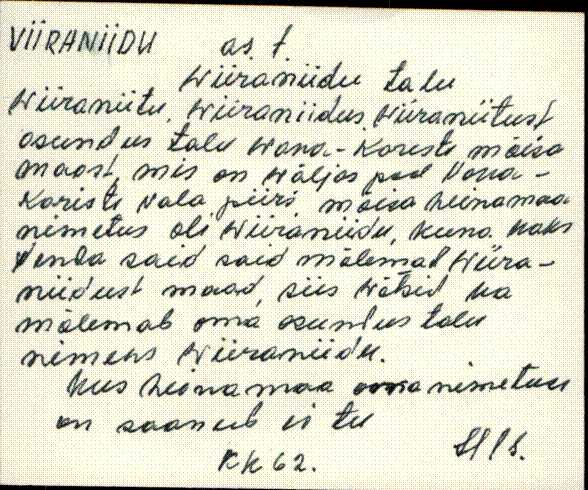 VIIRANIIDU as. t.
Wiiraniidu talu
Wiiraniitu, Wiiraniidus, Wiiraniitust
asundus talu Wana-Koreste mõisa
maast, mis on wäljas pool Vana-
Koriste vala piiri, mõisa heinamaa
nimetus oli Wiiraniidu, kuna kaks
venda said said mõlemad Wiira-
niidust maad, siis wõtsid ka
mõlemab oma asundus talu
nimeks Wiiraniidu.
Kus heinamaa oma nimetuse
on saanub ei tea
KK 62.